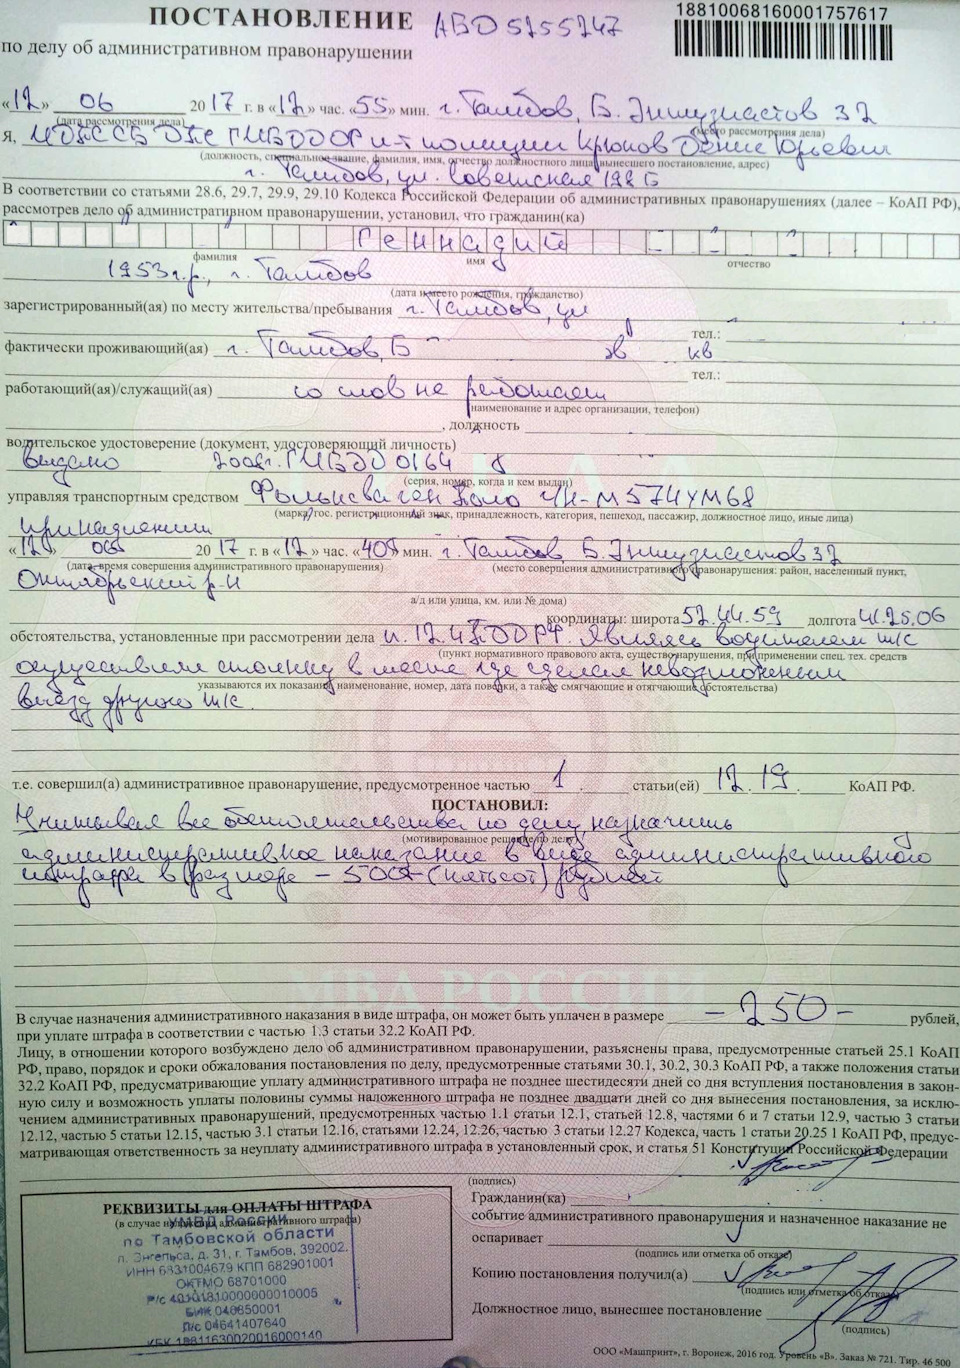 ПОСТАНОВЛЕНИЕ
18810068160001757617
по делу об административном правонарушении
«12» 06 2017 г. в «12» час. «55» мин. г. Тамбов, Б. Энтузиастов 32
(дата рассмотрения дела) (место рассмотрения дела)
Я, ИДПС СБ ДПС ГИБДД л-т полиции Крюков Денис Юрьевич
(должность, специальное звание, фамилия, имя, отчество должностного лица, вынесшего постановление, адрес)
г. Тамбов, ул. Советская 198 Б
В соответствии со статьями 28.6, 29.7, 29.9, 29.10 Кодекса Российской Федерации об административных правонарушениях (далее – КоАП РФ),
рассмотрев дело об административном правонарушении, установил, что гражданин(ка)
Геннадий
фамилия имя отчество
1953 г.р., г. Тамбов
(дата и место рождения, гражданство)
зарегистрированный(ая) по месту жительства/пребывания г. Тамбов, ул
тел.:
фактически проживающий(ая) г. Тамбов, Б кв
тел.:
работающий(ая)/служащий(ая) со слов не работает
(наименование и адрес организации, телефон)
, должность
водительское удостоверение (документ, удостоверяющий личность)
выдано 2008г. ГИБДД 0164
(серия, номер, когда и кем выдан)
управляя транспортным средством Фольксваген Поло г/н - М574УМ68
(марка, гос. регистрационный знак, принадлежность, категория, пешеход, пассажир, должностное лицо, иные лица)
принадлежит
«12» 06 2017 г. в «12» час. «40» мин. г. Тамбов, Б. Энтузиастов 32
(дата, время совершения административного правонарушения) (место совершения административного правонарушения: район, населенный пункт,
Октябрьский р-н
а/д или улица, км. или № дома)
координаты: широта 52.44.59 долгота 41.25.06
обстоятельства, установленные при рассмотрении дела п. 12.4 ПДД РФ. Являясь водителем т/с
(пункт нормативного правового акта, существо нарушения, при применении спец. тех. средств
осуществил стоянку в месте где сделал невозможным
указываются их показания, наименование, номер, дата поверки, а также смягчающие и отягчающие обстоятельства)
выезд другого т/с.
т.е. совершил(а) административное правонарушение, предусмотренное частью 1 статьи(ей) 12.19 КоАП РФ.
ПОСТАНОВИЛ:
Учитывая все обстоятельства по делу, назначить
(мотивированное решение по делу)
административное наказание в виде административного
штрафа в размере - 500 (пятьсот) рублей
МВД РОССИИ
В случае назначения административного наказания в виде штрафа, он может быть уплачен в размере - 250 - рублей,
при уплате штрафа в соответствии с частью 1.3 статьи 32.2 КоАП РФ.
Лицу, в отношении которого возбуждено дело об административном правонарушении, разъяснены права, предусмотренные статьей 25.1 КоАП
РФ, право, порядок и сроки обжалования постановления по делу, предусмотренные статьями 30.1, 30.2, 30.3 КоАП РФ, а также положения статьи
32.2 КоАП РФ, предусматривающие уплату административного штрафа не позднее шестидесяти дней со дня вступления постановления в закон-
ную силу и возможность уплаты половины суммы наложенного штрафа не позднее двадцати дней со дня вынесения постановления, за исклю-
чением административных правонарушений, предусмотренных частью 1.1 статьи 12.1, статьей 12.8, частями 6 и 7 статьи 12.9, частью 3 статьи
12.12, частью 5 статьи 12.15, частью 3.1 статьи 12.16, статьями 12.24, 12.26, частью 3 статьи 12.27 Кодекса, часть 1 статьи 20.25 1 КоАП РФ, предус-
матривающая ответственность за неуплату административного штрафа в установленный срок, и статья 51 Конституции Российской Федерации
(подпись)
Гражданин(ка)
событие административного правонарушения и назначенное наказание не
оспаривает
(подпись или отметка об отказе)
Копию постановления получил(а)
(подпись или отметка об отказе)
Должностное лицо, вынесшее постановление
(подпись)
РЕКВИЗИТЫ для ОПЛАТЫ ШТРАФА
(в случае наложения административного штрафа)
УМВД России
по Тамбовской области
л. Энгельса, д. 31, г. Тамбов, 392002.
ИНН 6831004679 КПП 682901001
ОКТМО 68701000
Р/с 40101810000000010005
БИК 046850001
Л/с 04641407640
КБК 18811630020016000140
ООО «Машпринт», г. Воронеж, 2016 год. Уровень «В». Заказ № 721. Тир. 46 500